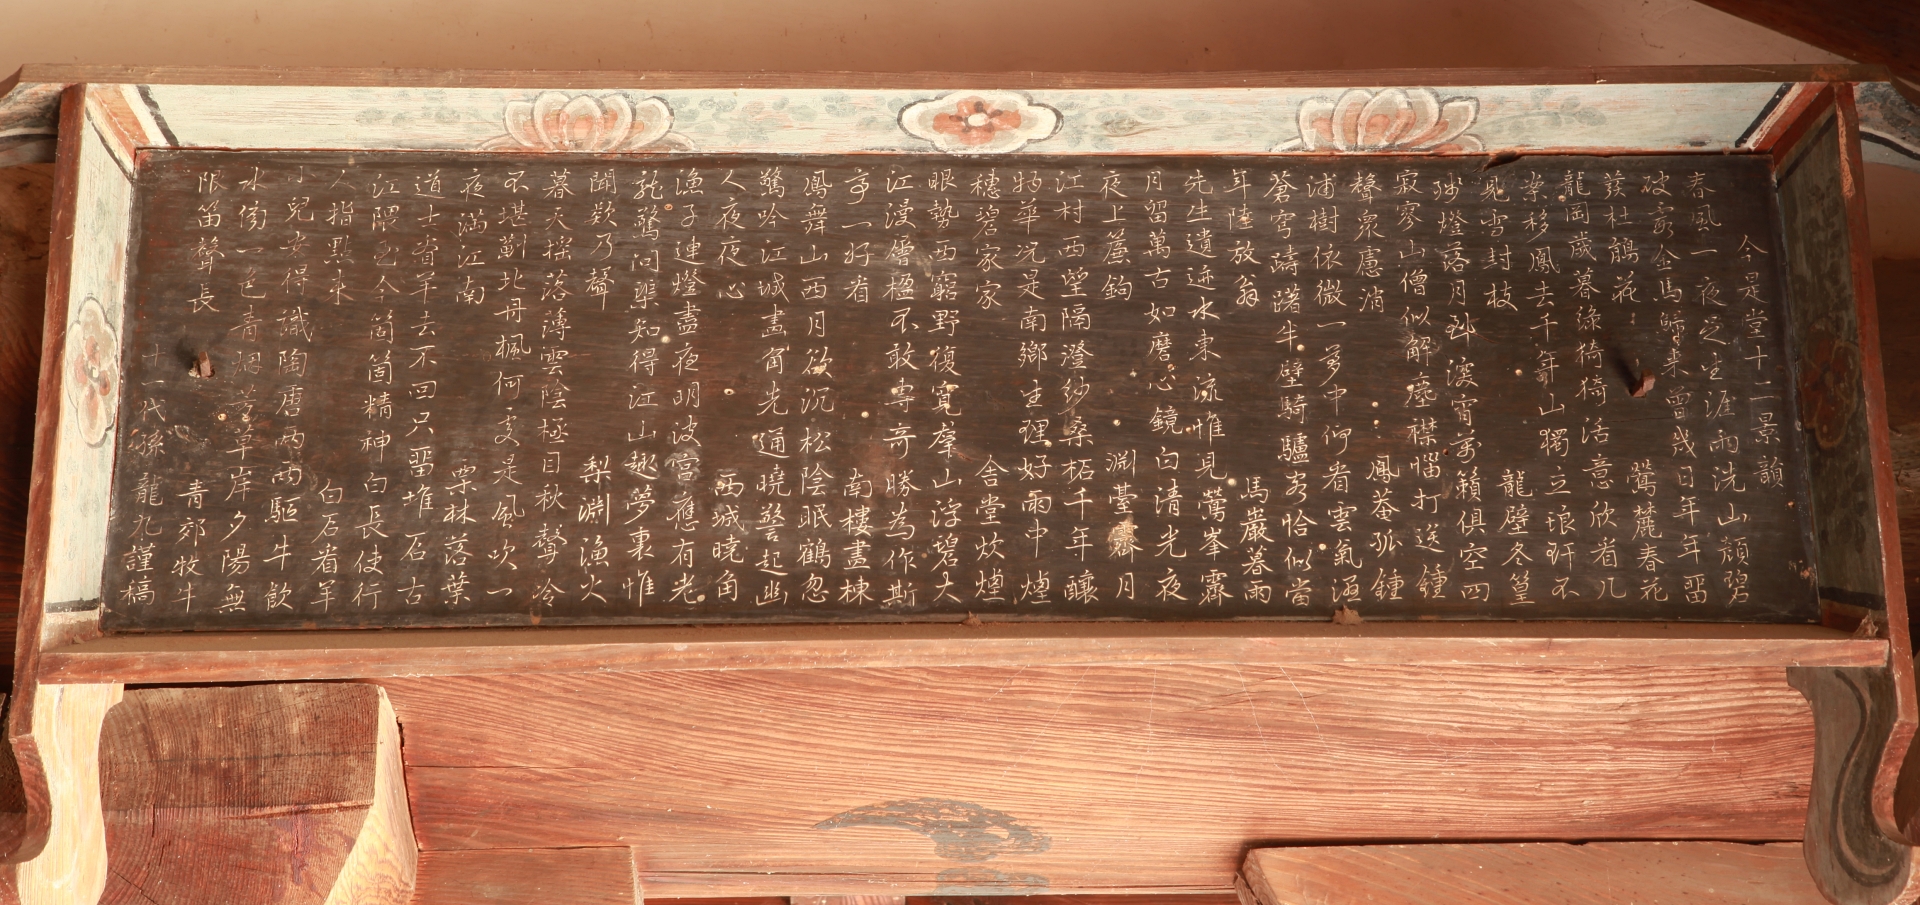 今是堂十二景韻
春風一夜乏生涯雨洗山顏碧
破客金馬歸来曾幾日年年畱
杜鵑花 鶯麓春花
龍岡歲暮綠猗猗活意欣看几
案移鳳去千年山獨立琅玕不
見雪封枝 龍壁冬篁
殘燈落月到深宵萬籟俱空四
寂寥山僧似解塵襟惱打送鍾
聲衆慮消 鳳菴孤鍾
浦樹依微一夢中仰看雲氣滃
蒼穹躊躇半壁騎驢客恰似當
年陸放翁 馬巖暮雨
先生遺迹水東流惟見鶯峯霽
月留萬古如磨心鏡白清光夜
夜上簾鉤 淵臺霽月
江村西望隔澄紗桑柘千年釀
物華况是南鄉生理好雨中煙
穗碧家家 舍堂炊煙
眼勢西窮野復寬羣山浮碧大
江漫層楹不敢專奇勝為作斯
亭一好看 南樓畫棟
鳳舞山西月欲沉松陰眠鶴忽
驚吟江城畵角先通曉警起幽
人夜夜心 西城曉角
漁子連燈盡夜明波宮應有老
龍驚问渠知得江山趣夢裏惟
聞欵乃聲 梨淵漁火
暮天搖落薄雲陰極目秋聲冷
不堪斸北丹楓何處是風吹一
夜滿江南 栗林落葉
道士看羊去不回只畱堆石古
江隈至今箇箇精神白長使行
人指點来 白石看羊
小兒安得識陶唐兩兩驅牛飲
水傍一色青烟芳草岸夕陽無
限笛聲長 青郊牧牛
十一代孫 龍九謹稿